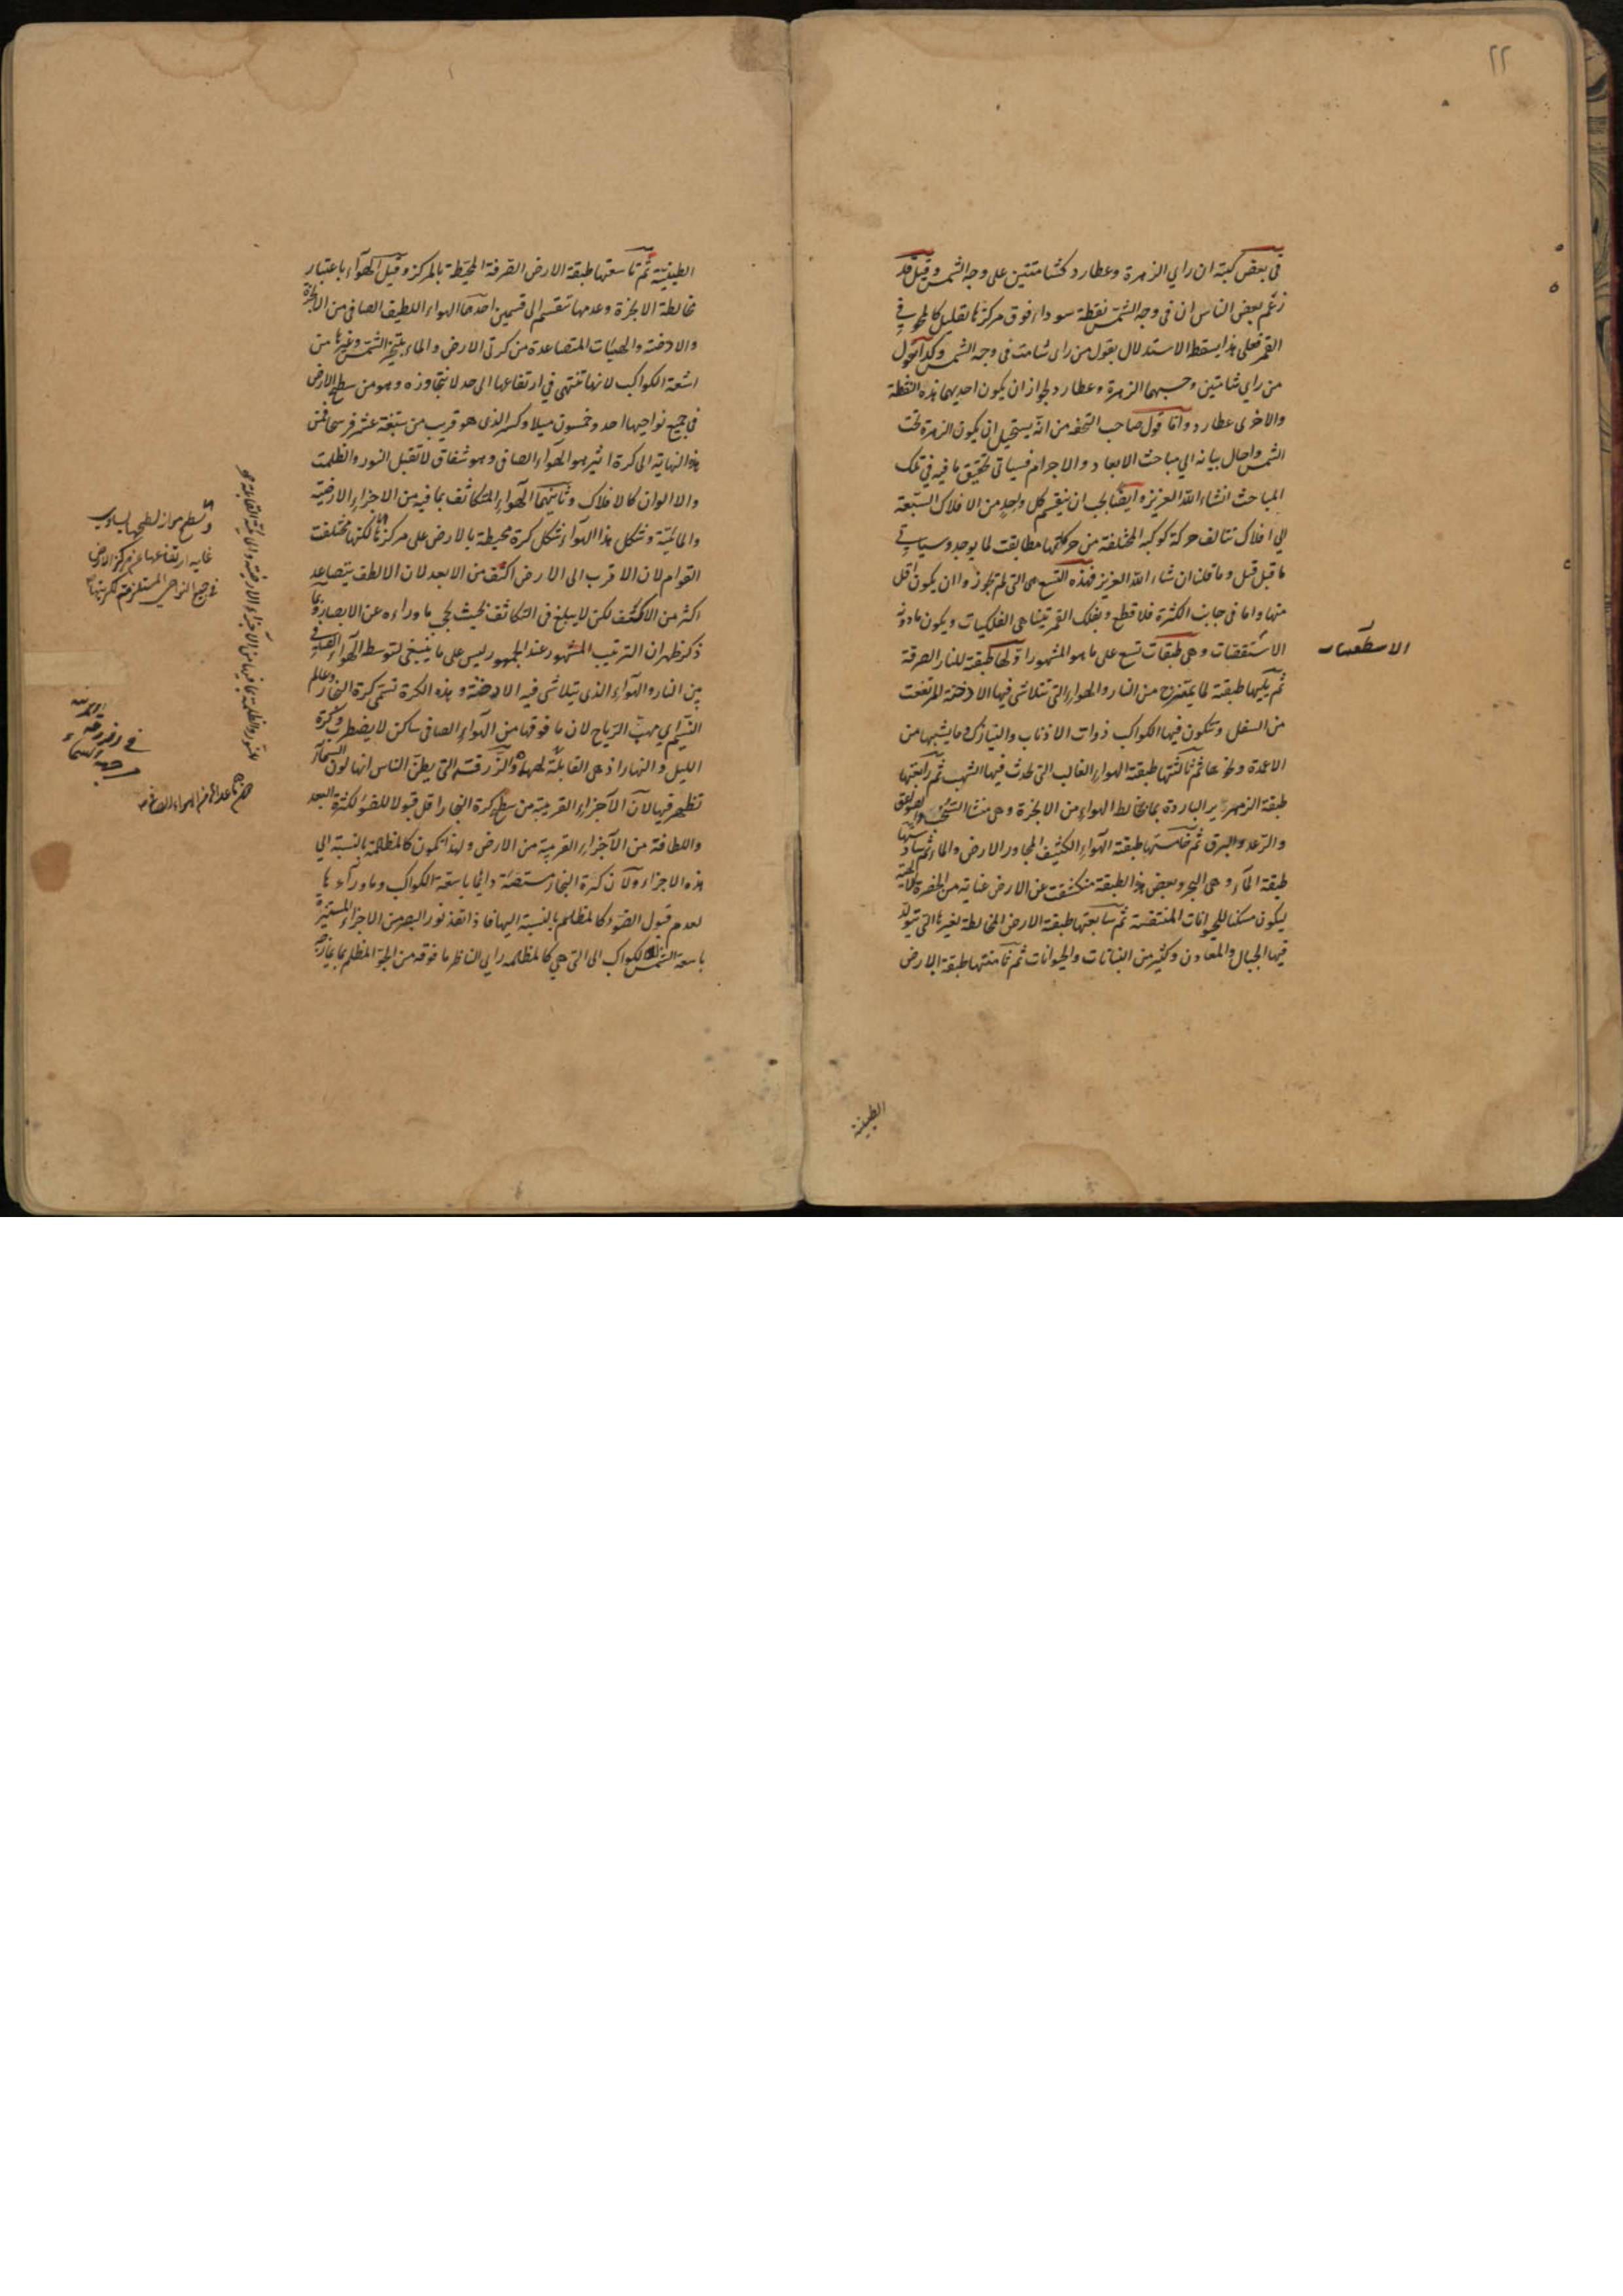 ٢٢
في بعض كتبه ان راي الزهرة وعطارد كشامتين على وجه الشمس وقيل قد
زعم بعض الناس ان في وجه الشمس نقطة سوداء فوق مركزها بقليل كالمحو في
القمر فعلى هذا يسقط الاستدلال بقول من راى شامة في وجه الشمس وكذا قول
من راي شامتين وحسبهما الزهرة وعطارد لجواز ان يكون احديهما هذه النقطة
والاخرى عطارد واما قول صاحب التحفه من انه يستحيل ان يكون الزهرة تحت
الشمس واحال بيانه الي مباحث الابعاد والاجرام فسياتي تحقيق ما فيه في تلك
المباحث انشاء الله العزيز وايضا يجب ان ينقسم كل واحد من الافلاك السبعة
الي افلاك تتالف حركة كوكبه المختلفة من حركاتها مطابقت لما يوجد وسياتي
ما قيل قبل وما قلنا ان شاء الله العزيز فهذه التسع هي التي لم يجوزوا ان يكون اقل
منها واما في جانب الكثرة فلا قطع وبفلك القمر تتناهى الفلكيات ويكون ما دونه
الاستقصات وهي طبقات تسع على ما هو المشهور اولها طبقة للنار الصرفة
ثم يليها طبقة لما يمتزج من النار والهواء التي تتلاشى فيها الادخنة المرتفعت
من السفل وتتكون فيها الكواكب ذوات الاذناب والنيازك وما يشبهها من
الاعمدة ونحوها ثم ثالثتها طبقة الهواء الغالب التي تحدث فيها الشهب ثم رابعتها
طبقة الزمهرير الباردة بما يخالط الهواء من الابخرة وهي منشا السحب والصواعق
والرعد والبرق ثم خامستها طبقة الهواء الكثيف المجاور الارض والماء ثم سادستها
طبقة الماء وهي البحر وبعض هذا الطبقة منكشفت عن الارض عناية من الحضرة الالهية
ليكون مسكنا للحيوانات المتنفسة ثم سابعتها طبقة الارض المخالطة لغيرها التي يتولد
فيها الجبال والمعادن وكثير من النباتات والحيوانات ثم ثامنتها طبقة الارض
الاسطقسات
الطينية
الطينية ثم تاسعتها طبقة الارض الصرفة المحيطة بالمركز وقيل الهواء باعتبار
مخالطة الابخرة وعدمها تنقسم الى قسمين احدهما الهواء اللطيف الصافي من الابخرة
والادخنة والهيئات المتصاعدة من كرتي الارض والماء بتسخين الشمس وغيرها من
اشعة الكواكب لانها تنتهي في ارتفاعها الى حد لا تتجاوزه وهو من سطح الارض
في جميع نواحيها احد وخمسون ميلا وكسر الذي هو قريب من سبعة عشر فرسخا فمن
هذا النهاية الى كرة اثير هو الهواء الصافي وهو شفاف لا تقبل النور والظلمت
والالوان كالافلاك وثانيهما الهواء المتكاثف بما فيه من الاجزاء الارضية
والمائية وشكل هذا الهواء شكل كرة محيطة بالارض على مركزها لكنها مختلفت
القوام لان الاقرب الى الارض اكثف من الابعد لان الالطف يتصاعد
اكثر من الاكثف لكن لا يبلغ في التكاثف بحيث يحجب ما وراءه عن الابصار وبما
ذكر ظهر ان الترتيب المشهور عند الجمهور ليس على ما ينبغي لتوسط الهواء الصافي
بين النار والهواء الذي يتلاشى فيه الادخنة و هذه الكرة تسمى كرة البخار وعالم
النسيم اي مهب الرياح لان ما فوقها من الهواء الصافي ساكن لا يضطرب وكرة
الليل والنهار اذ هي القابلة لهما والزرقة التي يظن الناس انها لون السماء
تظهر فيها لان الاجزاء القريبة من سطح كرة البخار اقل قبولا للضوء لكثرة البعد
واللطافة من الاجزاء القريبة من الارض ولهذا تكون كالمظلمة بالنسبة الي
هذه الاجزاء ولان كرة البخار مستضئة دائما باشعة الكواكب وما وراءها
لعدم قبول الضوء كالمظلم بالنسبة اليها فاذا نفذ نور البصر من الاجزاء المستنيرة
باشعة الشمس والكواكب الى التي هي كالمظلمه راى الناظر ما فوقه من الجو المظلم بما يمازجه
غاية ارتفاعها عن مركز الارض
في جميع النواحي المستلزمة لكريتها